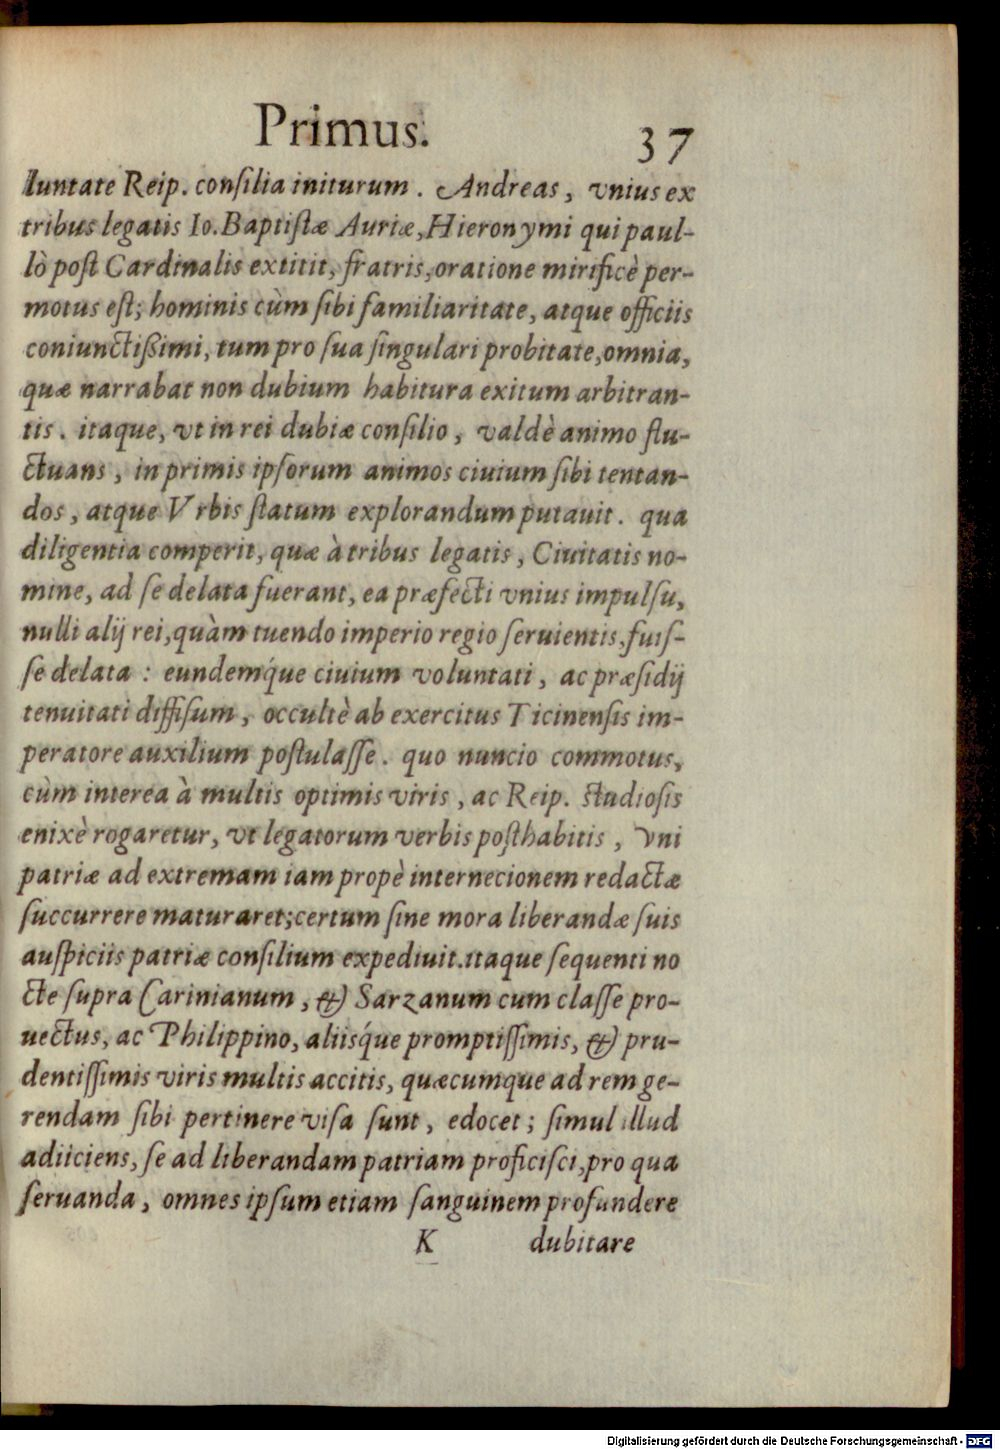 Primus. 37
luntate Reip. conſilia initurum. Andreas, vnius ex
tribus legatis Io. Baptiſtæ Auriæ, Hieronymi qui paul-
lò poſt Cardinalis extitit, fratris, oratione mirificè per-
motus eſt; hominis cùm ſibi familiaritate, atque officiis
coniunctißimi, tum pro ſua ſingulari probitate, omnia,
quæ narrabat non dubium habitura exitum arbitran-
tis. itaque, vt in rei dubiæ conſilio, valdè animo flu-
ctuans, in primis ipſorum animos ciuium ſibi tentan-
dos, atque Vrbis ſtatum explorandum putauit. qua
diligentia comperit, quæ à tribus legatis, Ciuitatis no-
mine, ad ſe delata fuerant, ea præfecti vnius impulſu,
nulli alij rei, quàm tuendo imperio regio ſeruientis, fuiſ-
ſe delata: eundemq́ue ciuium voluntati, ac præſidij
tenuitati diffiſum, occultè ab exercitus Ticinenſis im-
peratore auxilium poſtulaſſe. quo nuncio commotus,
cùm interea à multis optimis viris, ac Reip. ſtudioſis
enixè rogaretur, vt legatorum verbis poſthabitis, vni
patriæ ad extremam iam propè internecionem redactæ
ſuccurrere maturaret; certum ſine mora liberandæ ſuis
auſpiciis patriæ conſilium expediuit. itaque ſequenti no
cte ſupra Carinianum, & Sarzanum cum claſſe pro-
uectus, ac Philippino, aliisq́ue promptiſſimis, & pru-
dentiſſimis viris multis accitis, quæcumque ad rem ge-
rendam ſibi pertinere viſa ſunt, edocet; ſimul illud
adiiciens, ſe ad liberandam patriam proficiſci, pro qua
ſeruanda, omnes ipſum etiam ſanguinem profundere
K dubitare
Digitalisierung gefördert durch die Deutsche Forschungsgemeinschaft - DFG